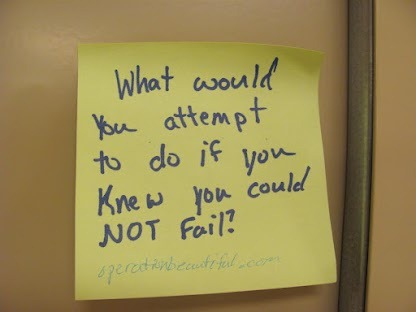 What would
you attempt
to do if you
Knew you could
NOT Fail?
operationbeautiful.com